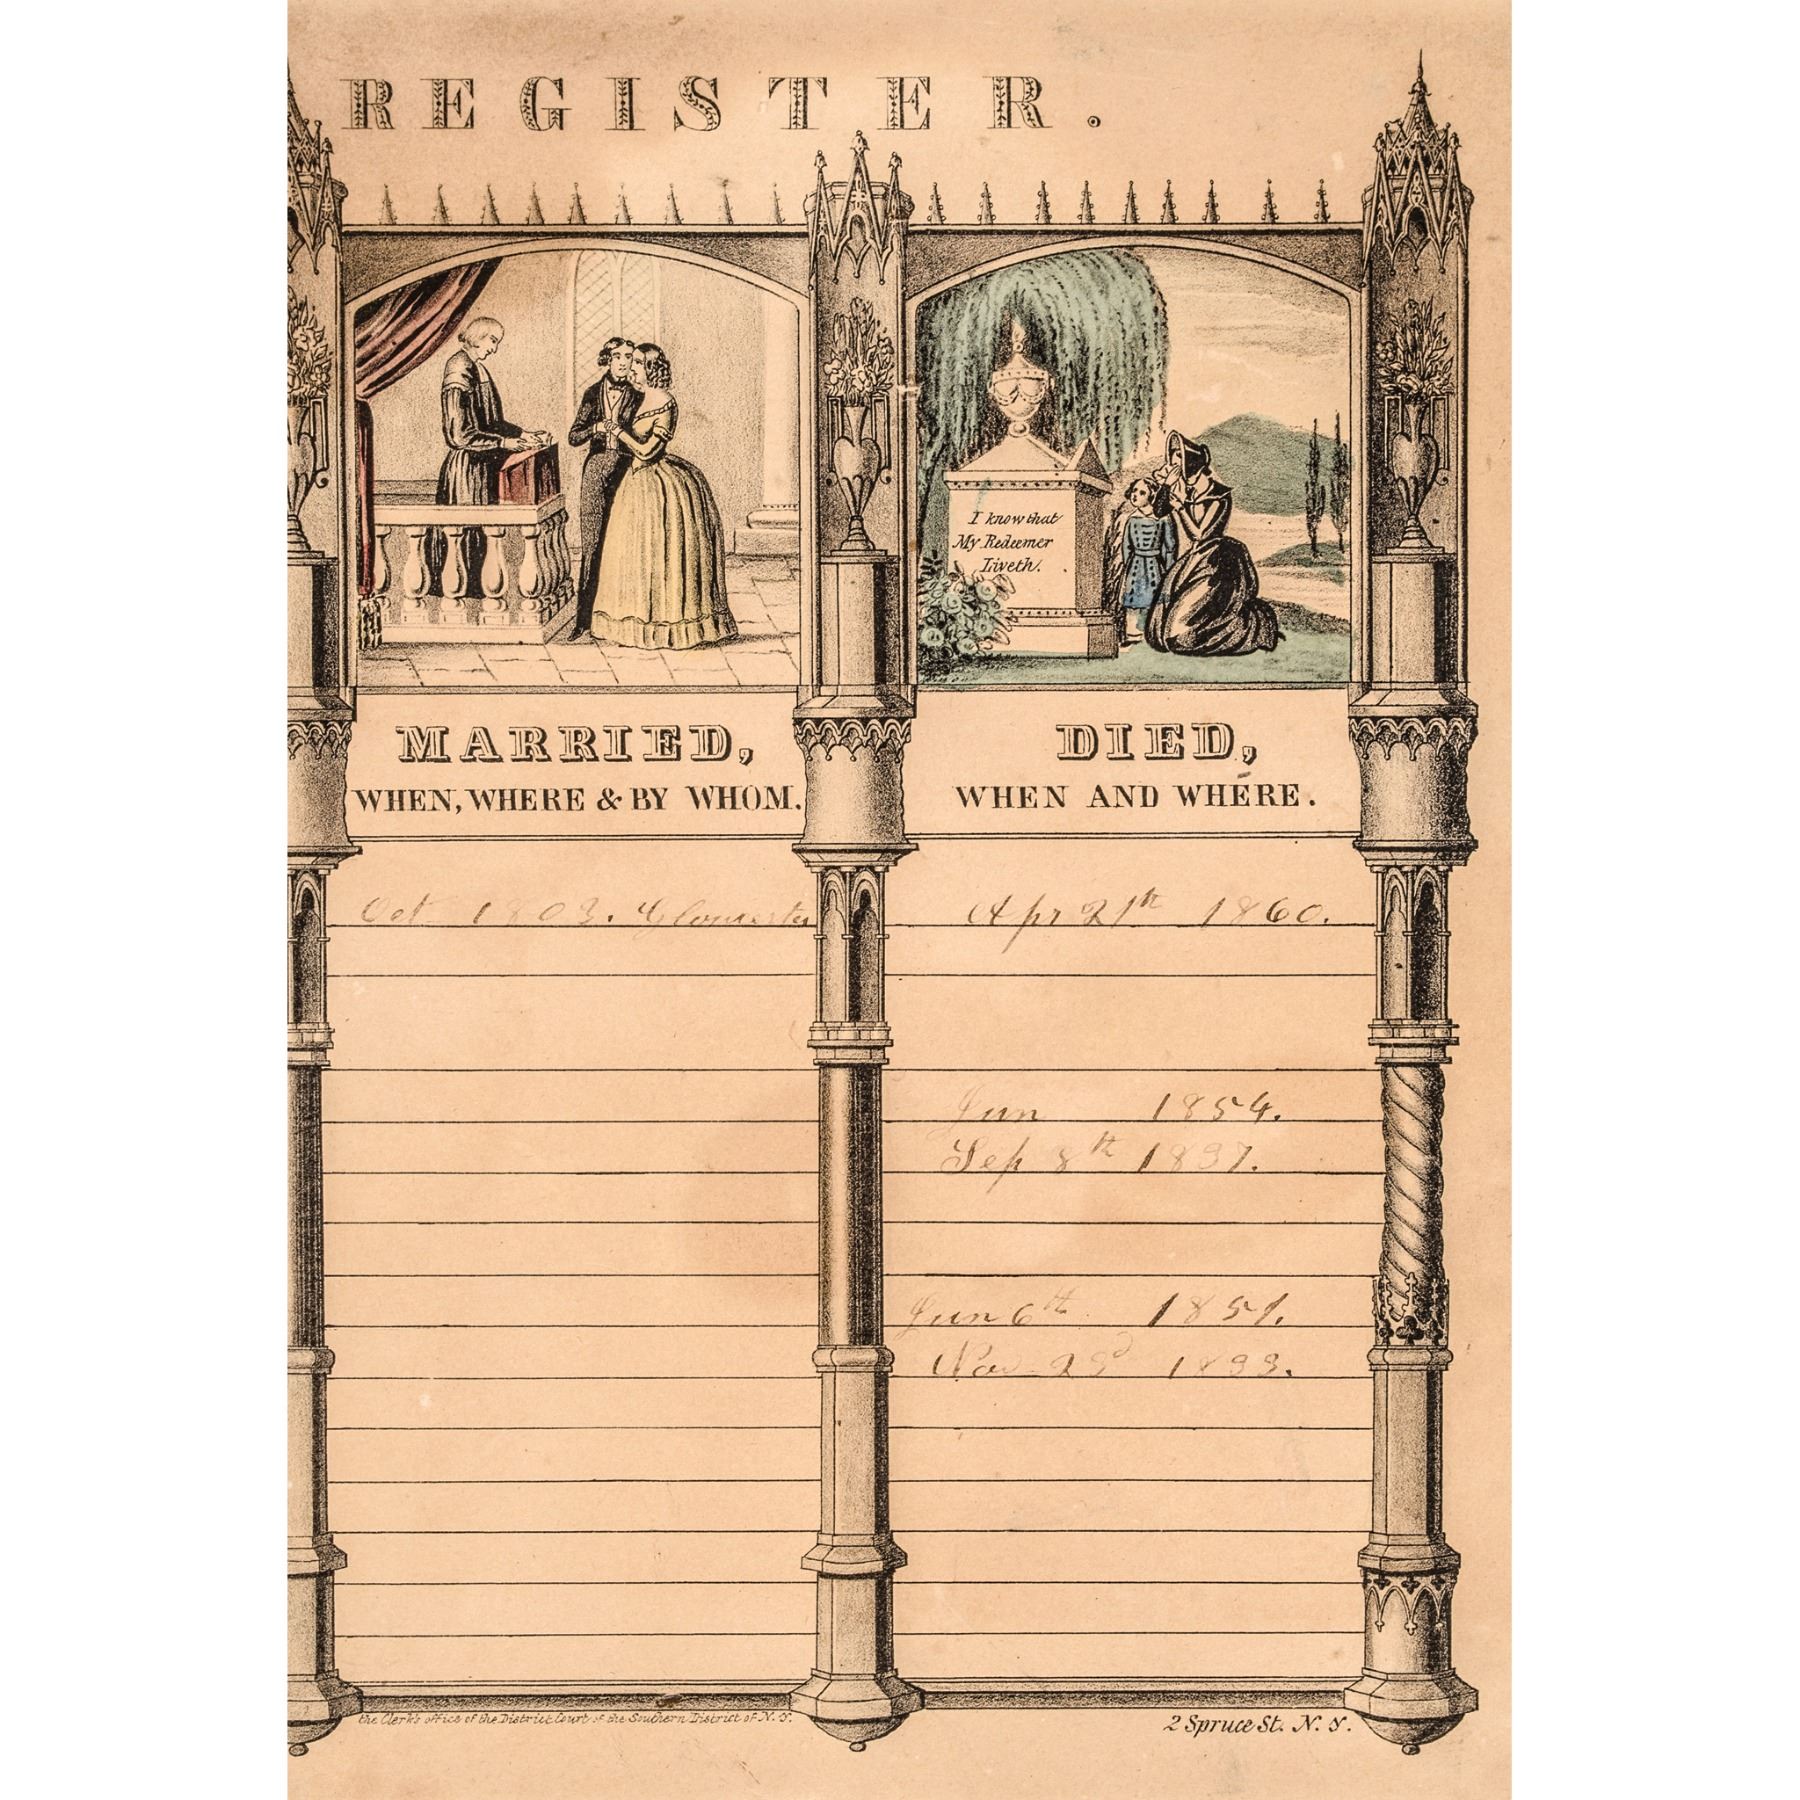 REGISTER.
I know that
My Redeemer
Liveth.
MARRIED,
WHEN, WHERE & BY WHOM.
DIED,
WHEN AND WHERE.
Oct 1803. Gloucester
Apr 21th 1860.
Jun 1854.
Sep 8th 1837.
Jun 6th 1851.
Nov 23d 1833.
the Clerk's office of the District Court of the Southern District of N. Y.
2 Spruce St. N. Y.